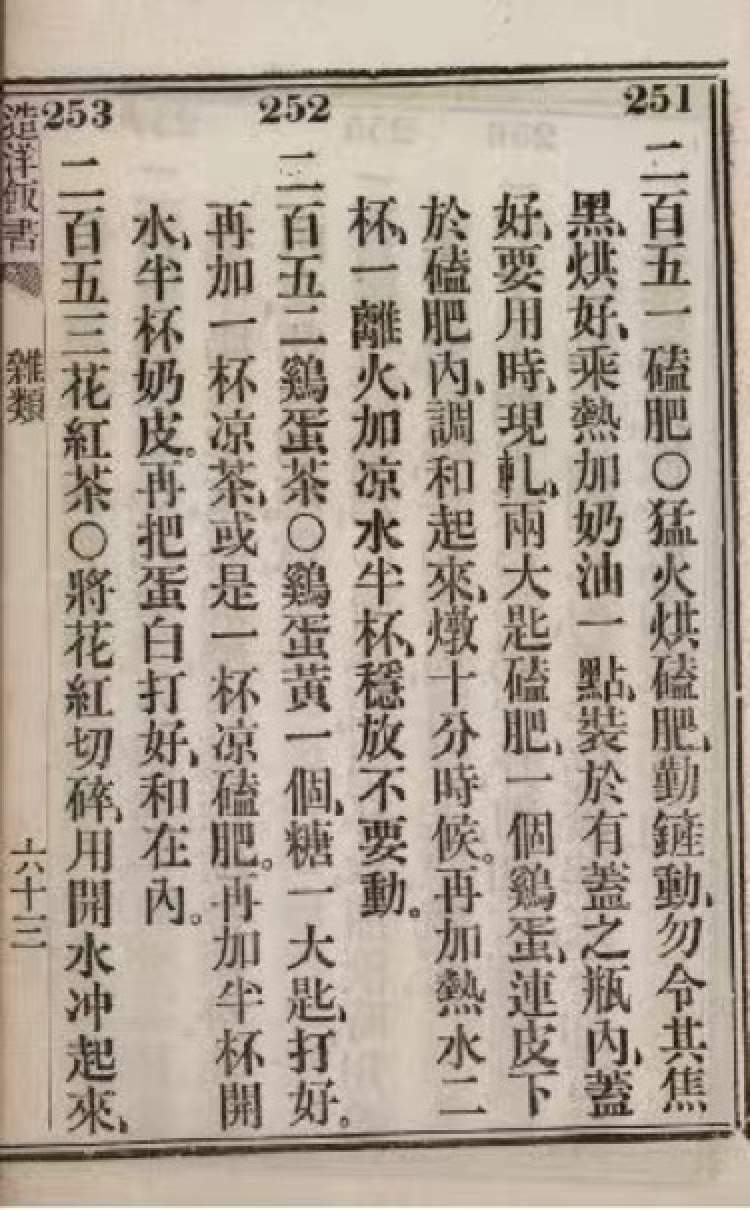 251
二百五一磕肥○猛火烘磕肥、勤鏟動、勿令其焦
黑、烘好、乘熱加奶油一點、裝於有蓋之瓶內、蓋
好、要用時、現軋、兩大匙磕肥、一個鷄蛋、連皮下
於磕肥內、調和起來、燉十分時候。再加熱水二
杯、一離火、加凉水半杯、穩放不要動。
252
二百五二鷄蛋茶○鷄蛋黃一個、糖一大匙、打好。
再加一杯凉茶、或是一杯凉磕肥。再加半杯開
水、半杯奶皮。再把蛋白打好、和在內。
253
二百五三花紅茶○將花紅切碎、用開水冲起來、
造洋飯書
雜類
六十三